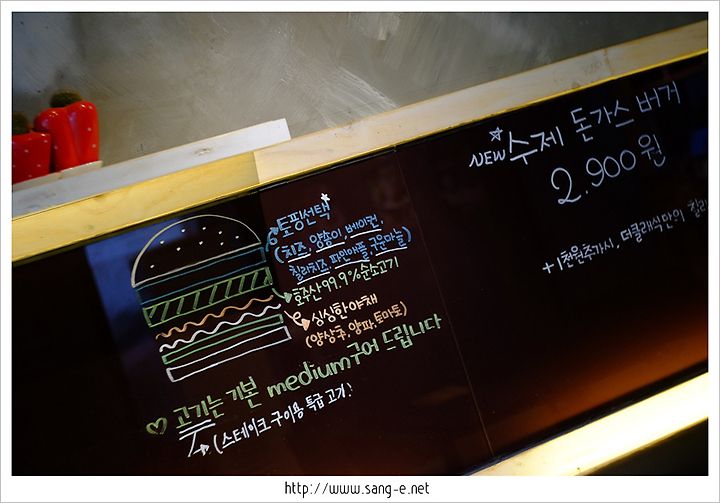 토핑선택
(치즈, 양송이, 베이컨,
칠리치즈, 파인애플, 구운마늘)
호주산 99.9% 순소고기
싱싱한 야채
(양상추, 양파, 토마토)
♡ 고기는 기본 medium 구어 드립니다
(스테이크 구이용 특급 고기!
NEW 수제 돈가스 버거
2,900원
+ 1천원추가시, 더클래식만의 칠리
http://www.sang-e.net